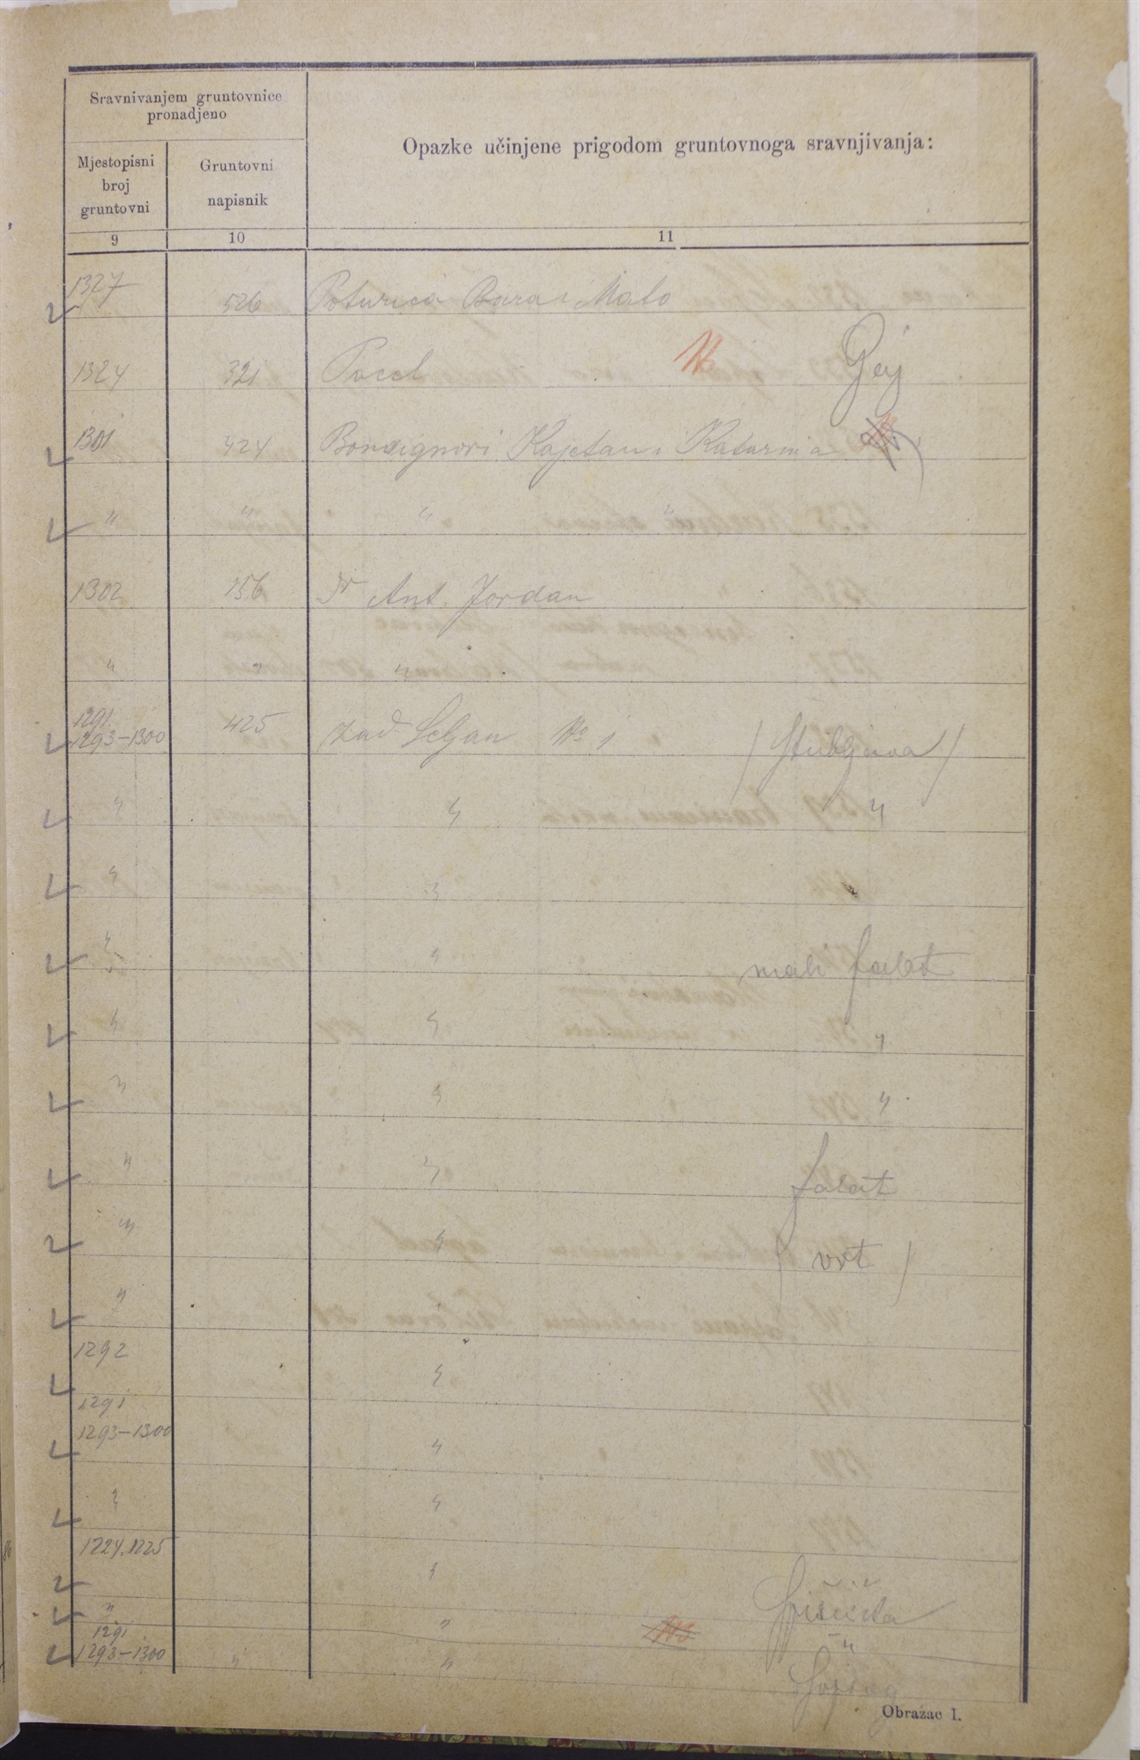 Sravnivanjem gruntovnice
pronadjeno
Opazke učinjene prigodom gruntovnoga sravnjivanja:
Mjestopisni
broj
gruntovni
Gruntovni
napisnik
9 10 11
1327 526 Poturica Bara i Mato
1324 321
1301 424 Bonsignori Kajetan i Katarina
" " " "
1302 256 Dr Ant. Jordan
" " "
1291
1293–1300 425 zad Seljan No 1
" " "
" "
" " mali falat
" " "
" " "
" " falat
" " (vrt)
"
1292 "
1291
1293–1300 "
" "
1224.1225 "
" "
1291
1293–1300 " "
Obrazac 1.